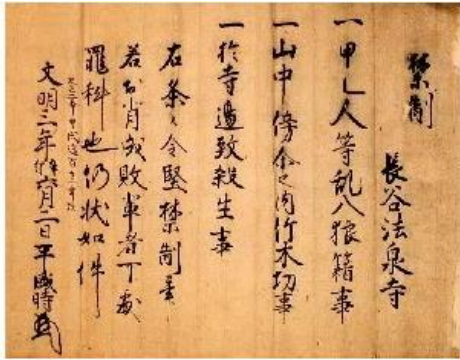 禁制
長谷法泉寺
一甲乙人等乱入狼籍事
一山中傍尓之内竹木切事
一於寺邊致殺生事
右条々令堅禁制畢
若於背成敗輩者可處
罪科也仍状如件
文明三年六月二日平盛時